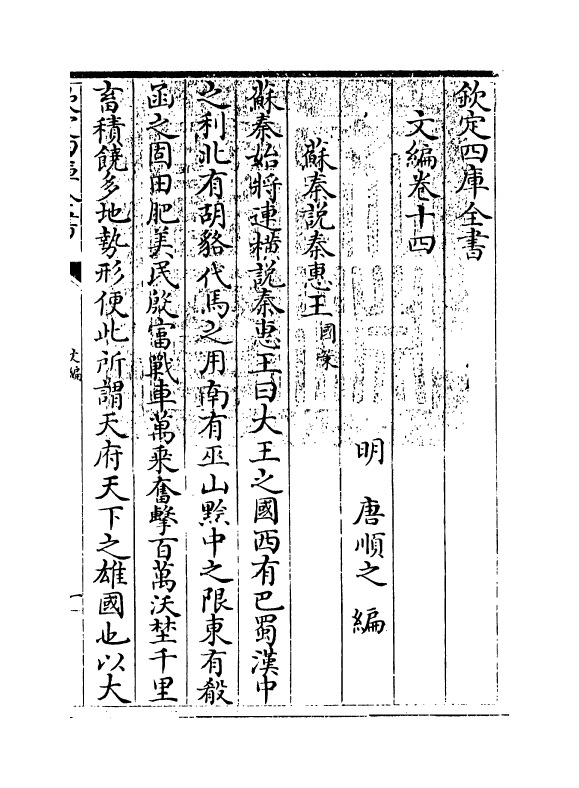 欽定四庫全書
文編卷十四
明 唐順之 編
蘇秦説秦惠王國策
蘇秦始將連橫説秦惠王曰大王之國西有巴蜀漢中
之利北有胡貉代馬之用南有巫山黔中之限東有殽
函之固田肥美民殷富戰車萬乘奮擊百萬沃埜千里
畜積饒多地勢形便此所謂天府天下之雄國也以大
欽定四庫全書
文編
一